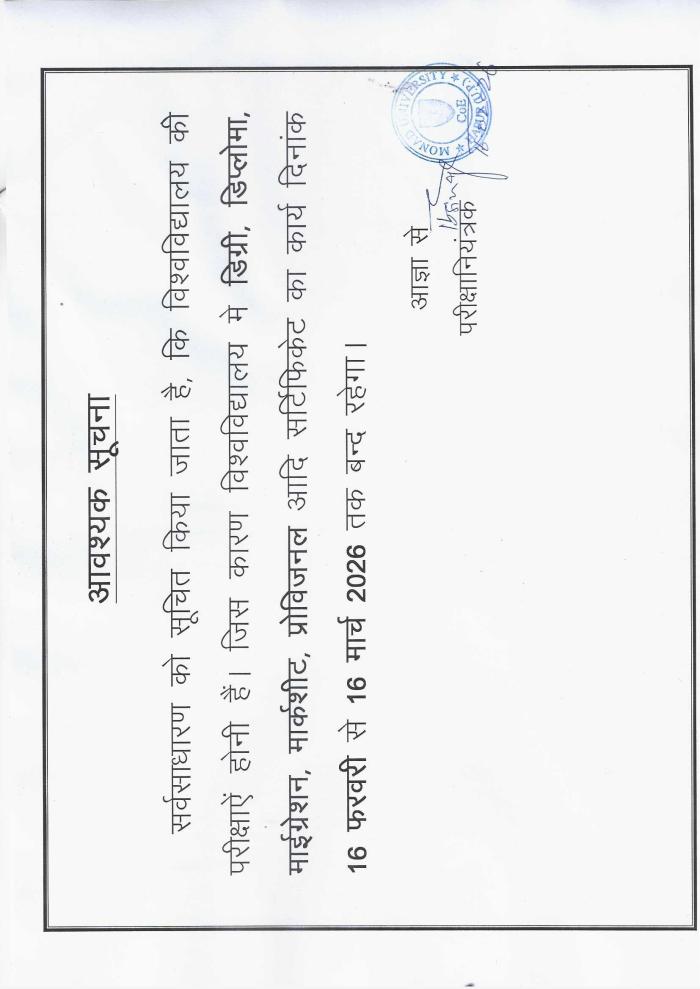 आवश्यक सूचना
सर्वसाधारण को सूचित किया जाता है, कि विश्वविद्यालय की
परीक्षाऐं होनी हैं। जिस कारण विश्वविद्यालय मे डिग्री, डिप्लोमा,
माईग्रेशन, मार्कशीट, प्रोविजनल आदि सर्टिफिकेट का कार्य दिनांक
16 फरवरी से 16 मार्च 2026 तक बन्द रहेगा।
आज्ञा से
परीक्षानियंत्रक
MONAD UNIVERSITY
CoE